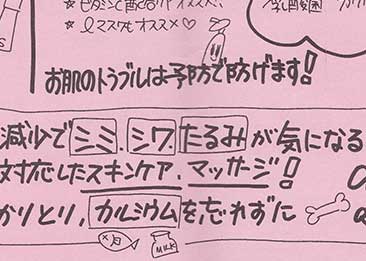 ★ビタミンC配合がオススメ!
★のマスクもオススメ♡
乳酸菌
お肌のトラブルは予防で防げます!
減少でシミ、シワ、たるみが気になる
対応したスキンケア、マッサージ!
かりとり、カルシウムを忘れずに
MILK